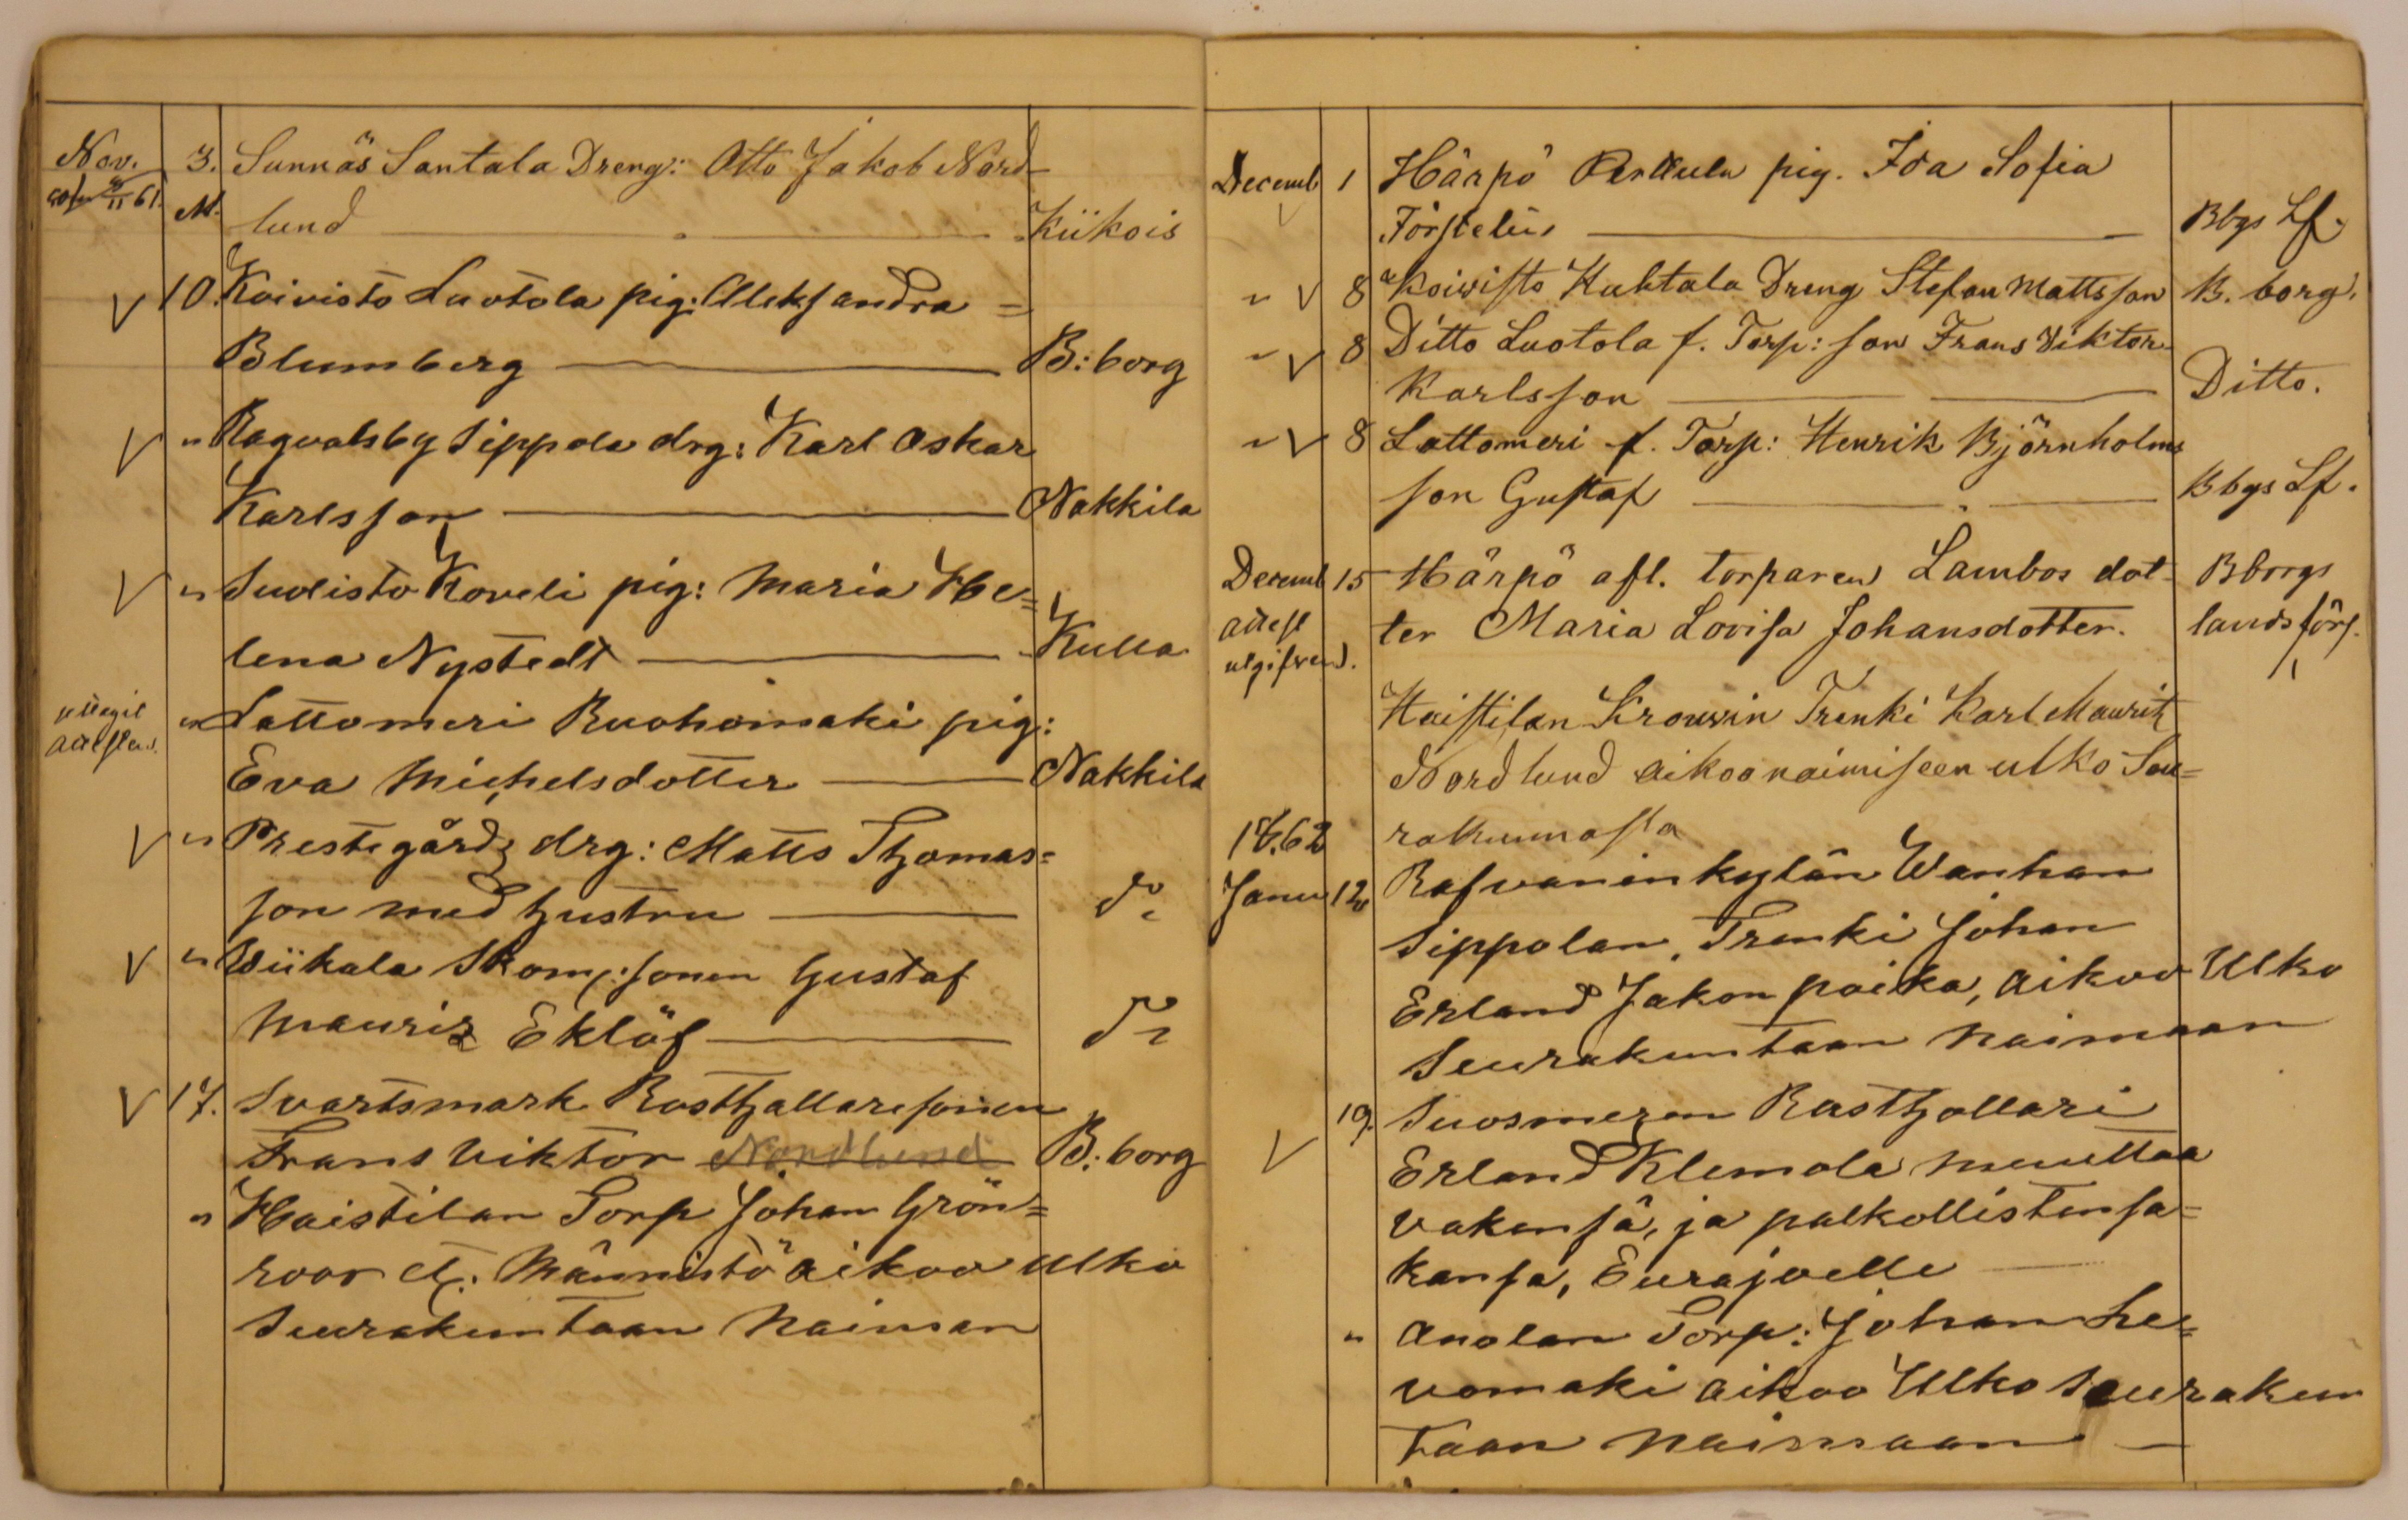 Nov. 3. Sunnäs Santala Dreng: Otto Jakob Nord-
11 61. M. lund Kiikois
10. Koivisto Luotola pig: Aleksandra =
Blumberg B:borg
" Ragvalsby Sippola drg: Karl Oskar
Karlsson Nakkila
" Suolisto Koveli pig: Maria He=
lena Nystedt Kulla
" Lattomeri Ruohomaki pig:
Eva Michelsdotter Nakkila
" Prestegårds drg: Matts Thomas=
son med hustru do
" Wiikala Skom: sonen Gustaf
Mauriz Eklöf do
17. Svartsmark Rusthallaresonen
Frans Viktor Nordlund B:borg
" Haistilan Torp Johan Grön=
roos Männistö aikoo Ulko
Seurakuntaan Naiman
Decemb 1 Härpö pig. Ida Sofia
Förstelius Bbgs Lf.
" 8 Koivisto Kuhtala Dreng Stefan Mattsson B. borg.
" 8 Ditto Luotola f. Torp: son Frans Viktor
Karlsson Ditto.
" 8 Lattomeri f. Torp: Henrik Björnholms
son Gustaf Bbgs Lf.
Decemb 15 Härpö afl. torparen Lambos dot- Bborgs
attest ter Maria Lovisa Johansdotter. landsförs.
utgifven.
Haistilan Krouvin Trenki Karl Mauritz
Nordlund aikoo naimiseen ulko Seu=
1862 rakunnasta
Janu 12 Rafvaninkylän Wanhan
Sippolan, Trenki Johan
Erland Jakon poika, aikoo Ulko
Seurakuntaan Naimaan
19. Suosmeren Rusthollari
Erland Klemola muuttaa
väkensä, ja palkollistensa=
kansa, Eurajoelle
" Anolan Torp: Johan Le=
vomaki aikoo Ulko Seurakun
taan Naimaan